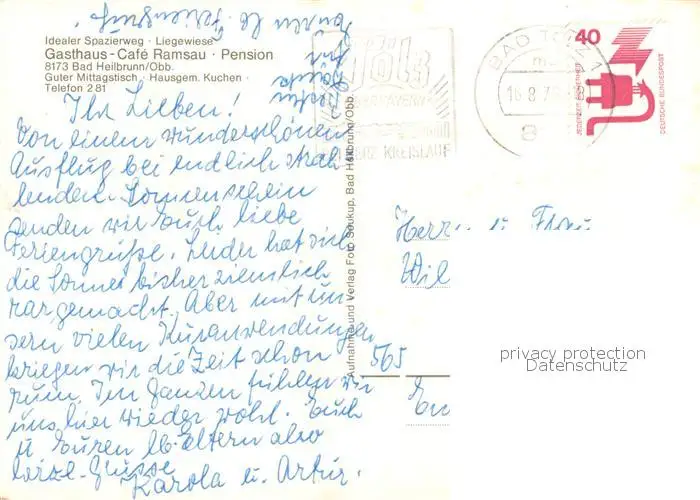 Idealer Spazierweg · Liegewiese
Gasthaus-Café Ramsau · Pension
8173 Bad Heilbrunn/Obb.
Guter Mittagstisch · Hausgem. Kuchen ·
Telefon 2 81
Ihr Lieben!
Von einem wunderschönen
Ausflug bei endlich strah
lendem Sonnenschein
senden wir Euch liebe
Feriengrüße. Leider hat sich
die Sonne bisher ziemlich
rar gemacht. Aber mit un
sern vielen Kuranwendungen
kriegen wir die Zeit schon
rum. Im Ganzen fühlen wir
uns hier wieder wohl. Euch
u. Euren lb. Eltern also
herzl. Grüsse
Karola u. Artur.
Aufnahme und Verlag Foto Soukup, Bad Heilbrunn/Obb.
BAD TÖLZ 1
16.8.7
HERZ KREISLAUF
40
JEDERZEIT SICHERHEIT
DEUTSCHE BUNDESPOST
Herrn u. Frau
Wil
565
privacy protection
Datenschutz